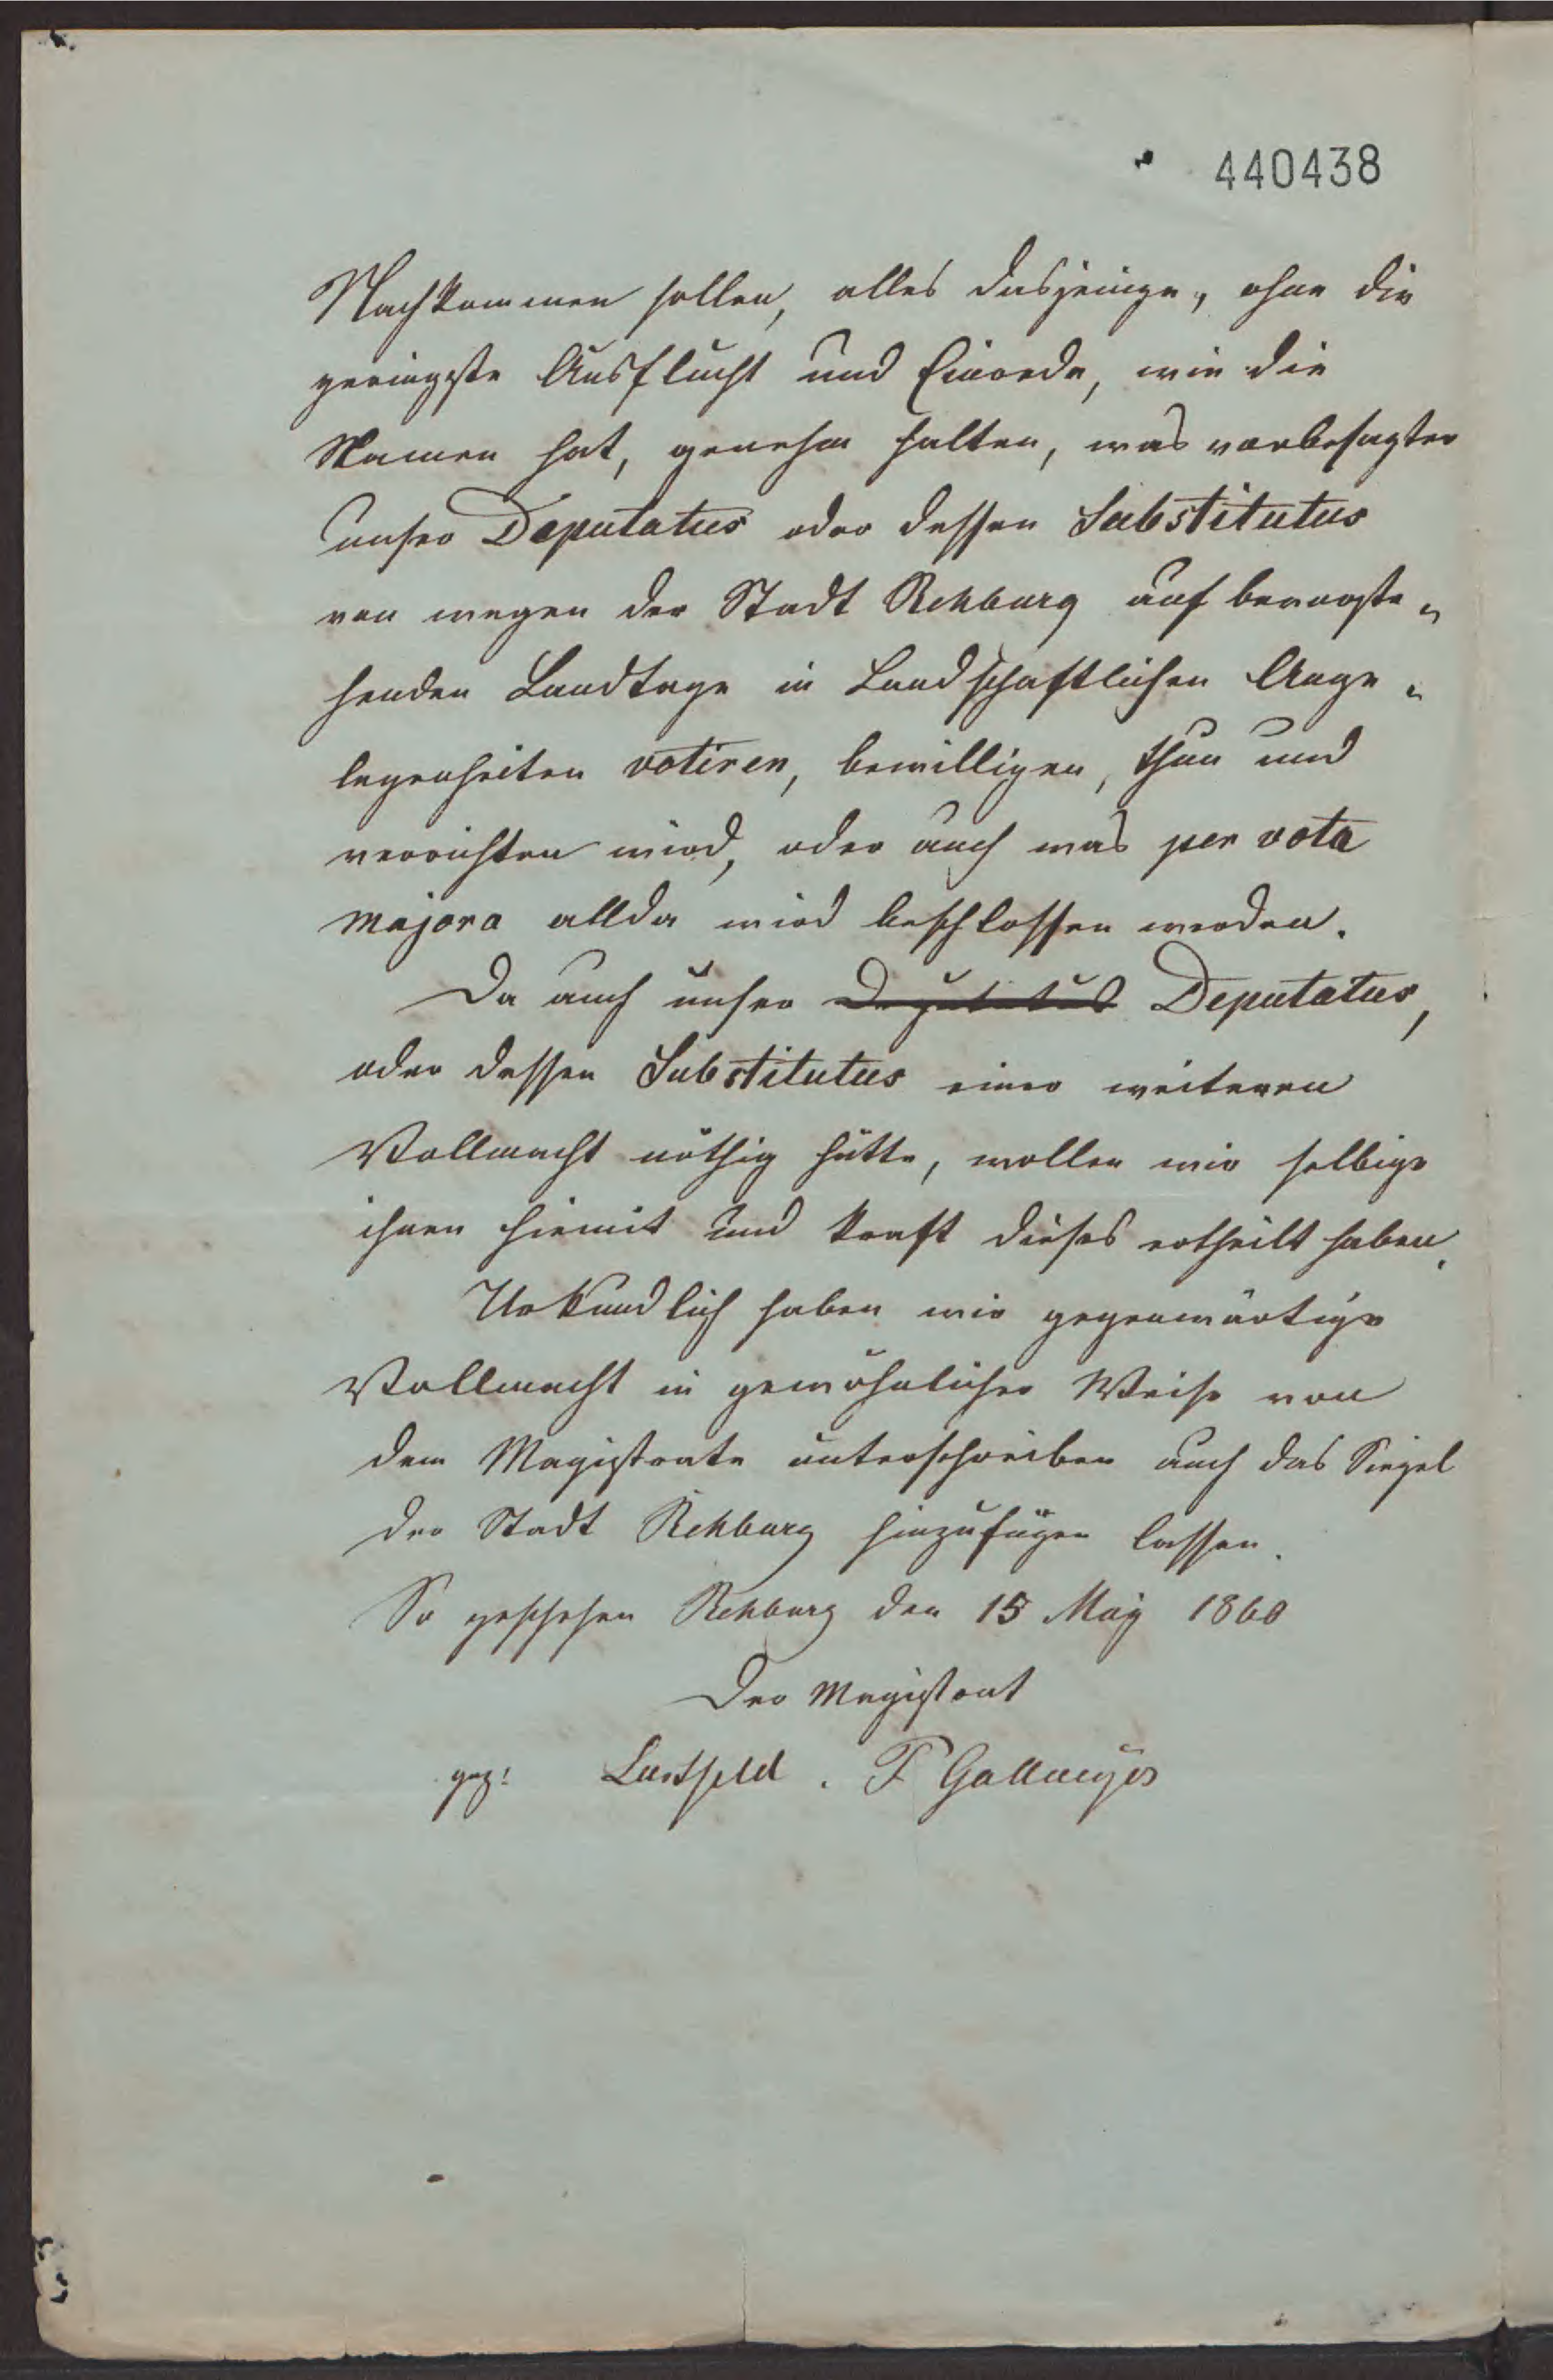 440438
Nachkommen sollen, alles dasjenige, ohne die
geringste Ausflucht und Einrede, wie die
Namen hat, genehm halten, was vorbesagter
unser Deputatus oder dessen Substitutus
von wegen der Stadt Rehburg auf bevorste„
henden Landtage in Landschaftlichen Ange„
legenheiten votiren, bewilligen, thun und
verrichten wird, oder auch was per vota
majora allda wird beschlossen werden.
Da auch unser Deputatus Deputatus,
oder dessen Substitutus einer weiteren
Vollmacht nöthig hätte, wollen wir selbige
ihnen hiemit und kraft dieses ertheilt haben.
Urkundlich haben wir gegenwärtige
Vollmacht in gewöhnlicher Weise von
dem Magistrate unterschreiben auch das Siegel
der Stadt Rehburg hinzufügen lassen.
So geschehen Rehburg den 15 May 1860
Der Magistrat
gez: Lustfeld. F Gallmeyer